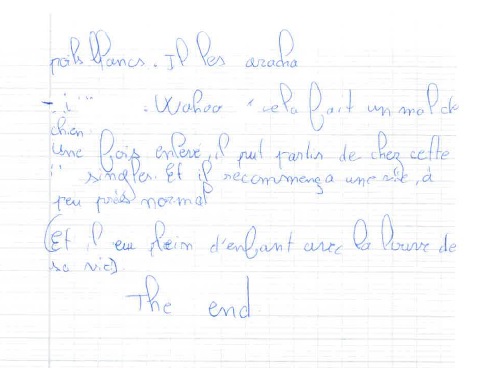 poils blancs. Il les aracha
- i''' . Wahoo " cela fait un mal de
chien
Une fois enlevé, il put partir de chez cette
singles. Et il recommença une vie, à
peu près normal
(Et il eu plein d'enfant avec la louve de
sa vie).
The end